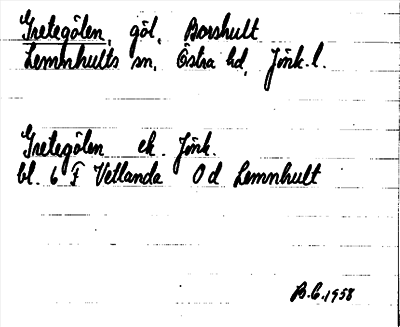 Gretegölen, göl, Borshult
Lemnhults sn, Östra hd, Jönk. l.
Gretegölen ek. Jönk.
bl. 6 F Vetlanda 0 d Lemnhult
B.G. 1958